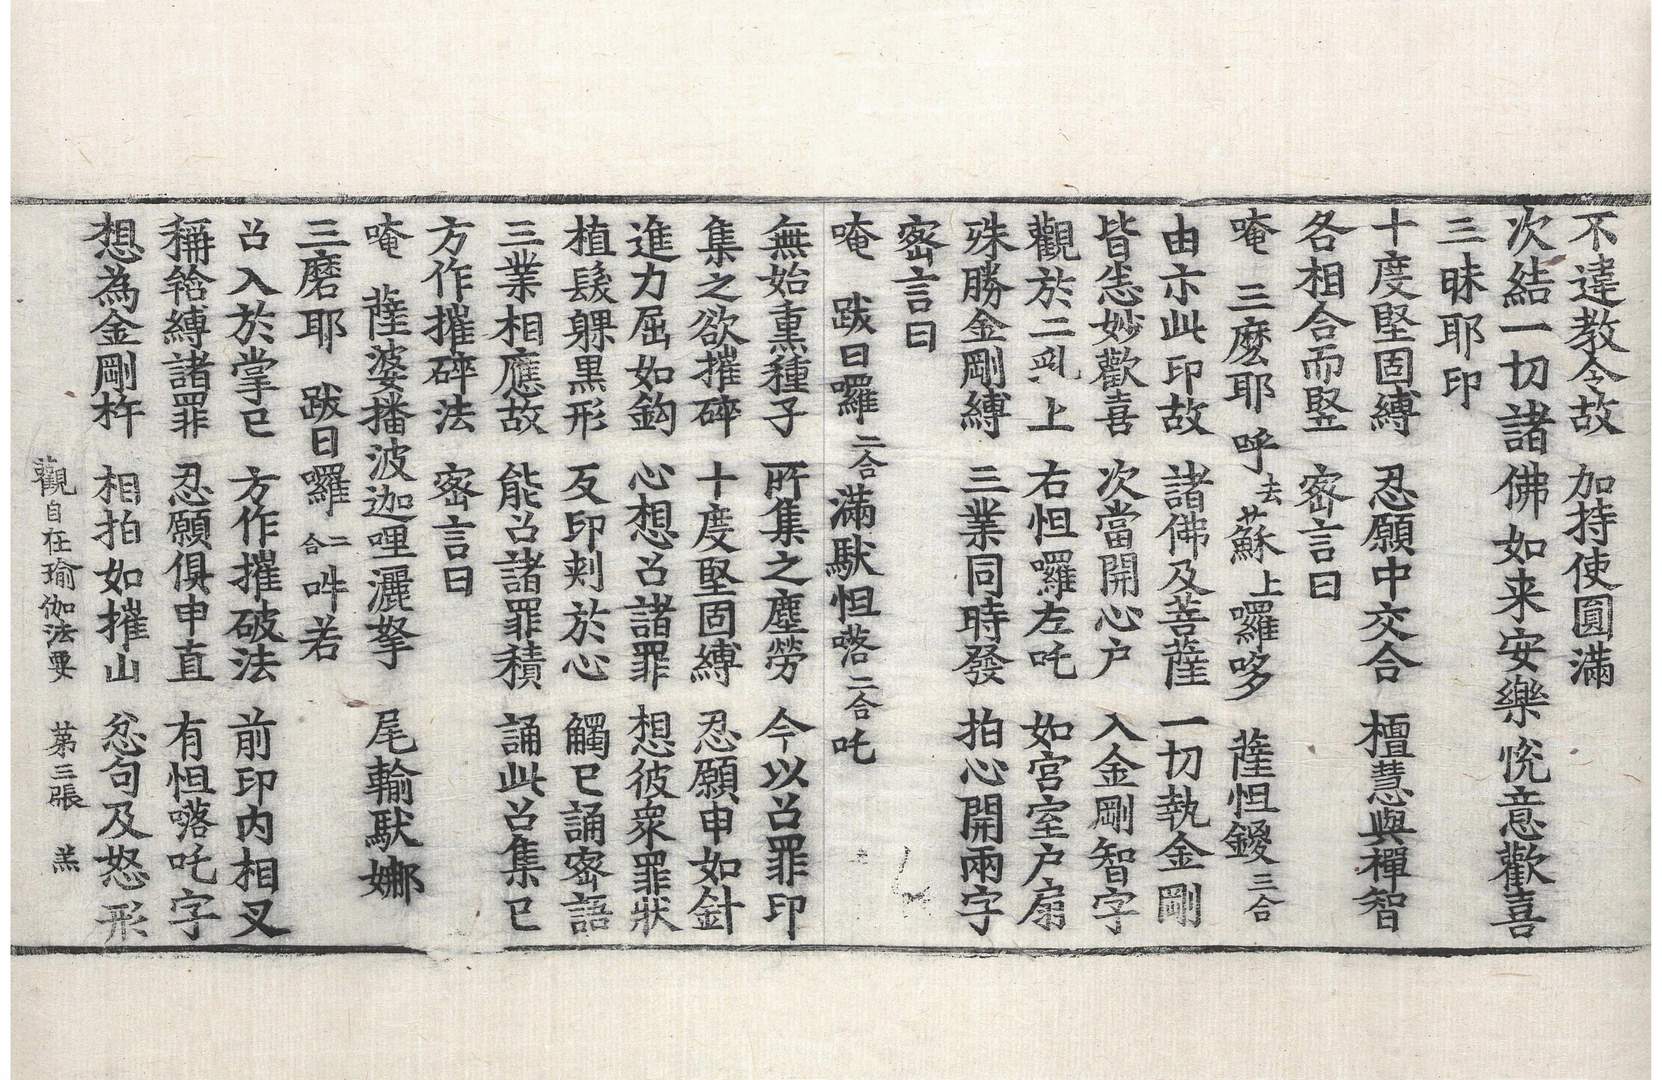 不違教令故　加持使圓滿
次結一切諸佛如来安樂悦意歡喜
三昧耶印
十度堅固縛　忍願中交合　檀慧與禪智
各相合而竪　密言曰
唵　三麽耶　呼去蘇上囉哆　薩怛鑁三合
由示此印故　諸佛及菩薩　一切執金剛
皆恙妙歡喜　次當開心户　入金剛智字
觀於二乳上　右怛囉左吒　如宫室户扇
殊勝金剛縛　三業同時發　拍心開兩字
密言曰
唵　跋日囉二合滿馱怛𠷈二合吒
無始熏種子　所集之塵勞　今以召罪印
集之欲摧碎　十度堅固縛　忍願申如針
進力屈如鈎　心想召諸罪　想彼衆罪狀
植髮躶黒形　反印刾於心　觸已誦密語
三業相應故　能召諸罪積　誦此召集已
方作摧碎法　密言曰
唵　薩婆播波迦哩灑拏　尾輸馱娜
三磨耶　跋日囉二合吽若
召入於掌已　方作摧破法　前印内相叉
稱誵縛諸罪　忍願俱申直　有怛𠷈吒字
想為金剛杵　相拍如摧山　忿句及怒形
觀自在瑜伽法要　第三張　羔